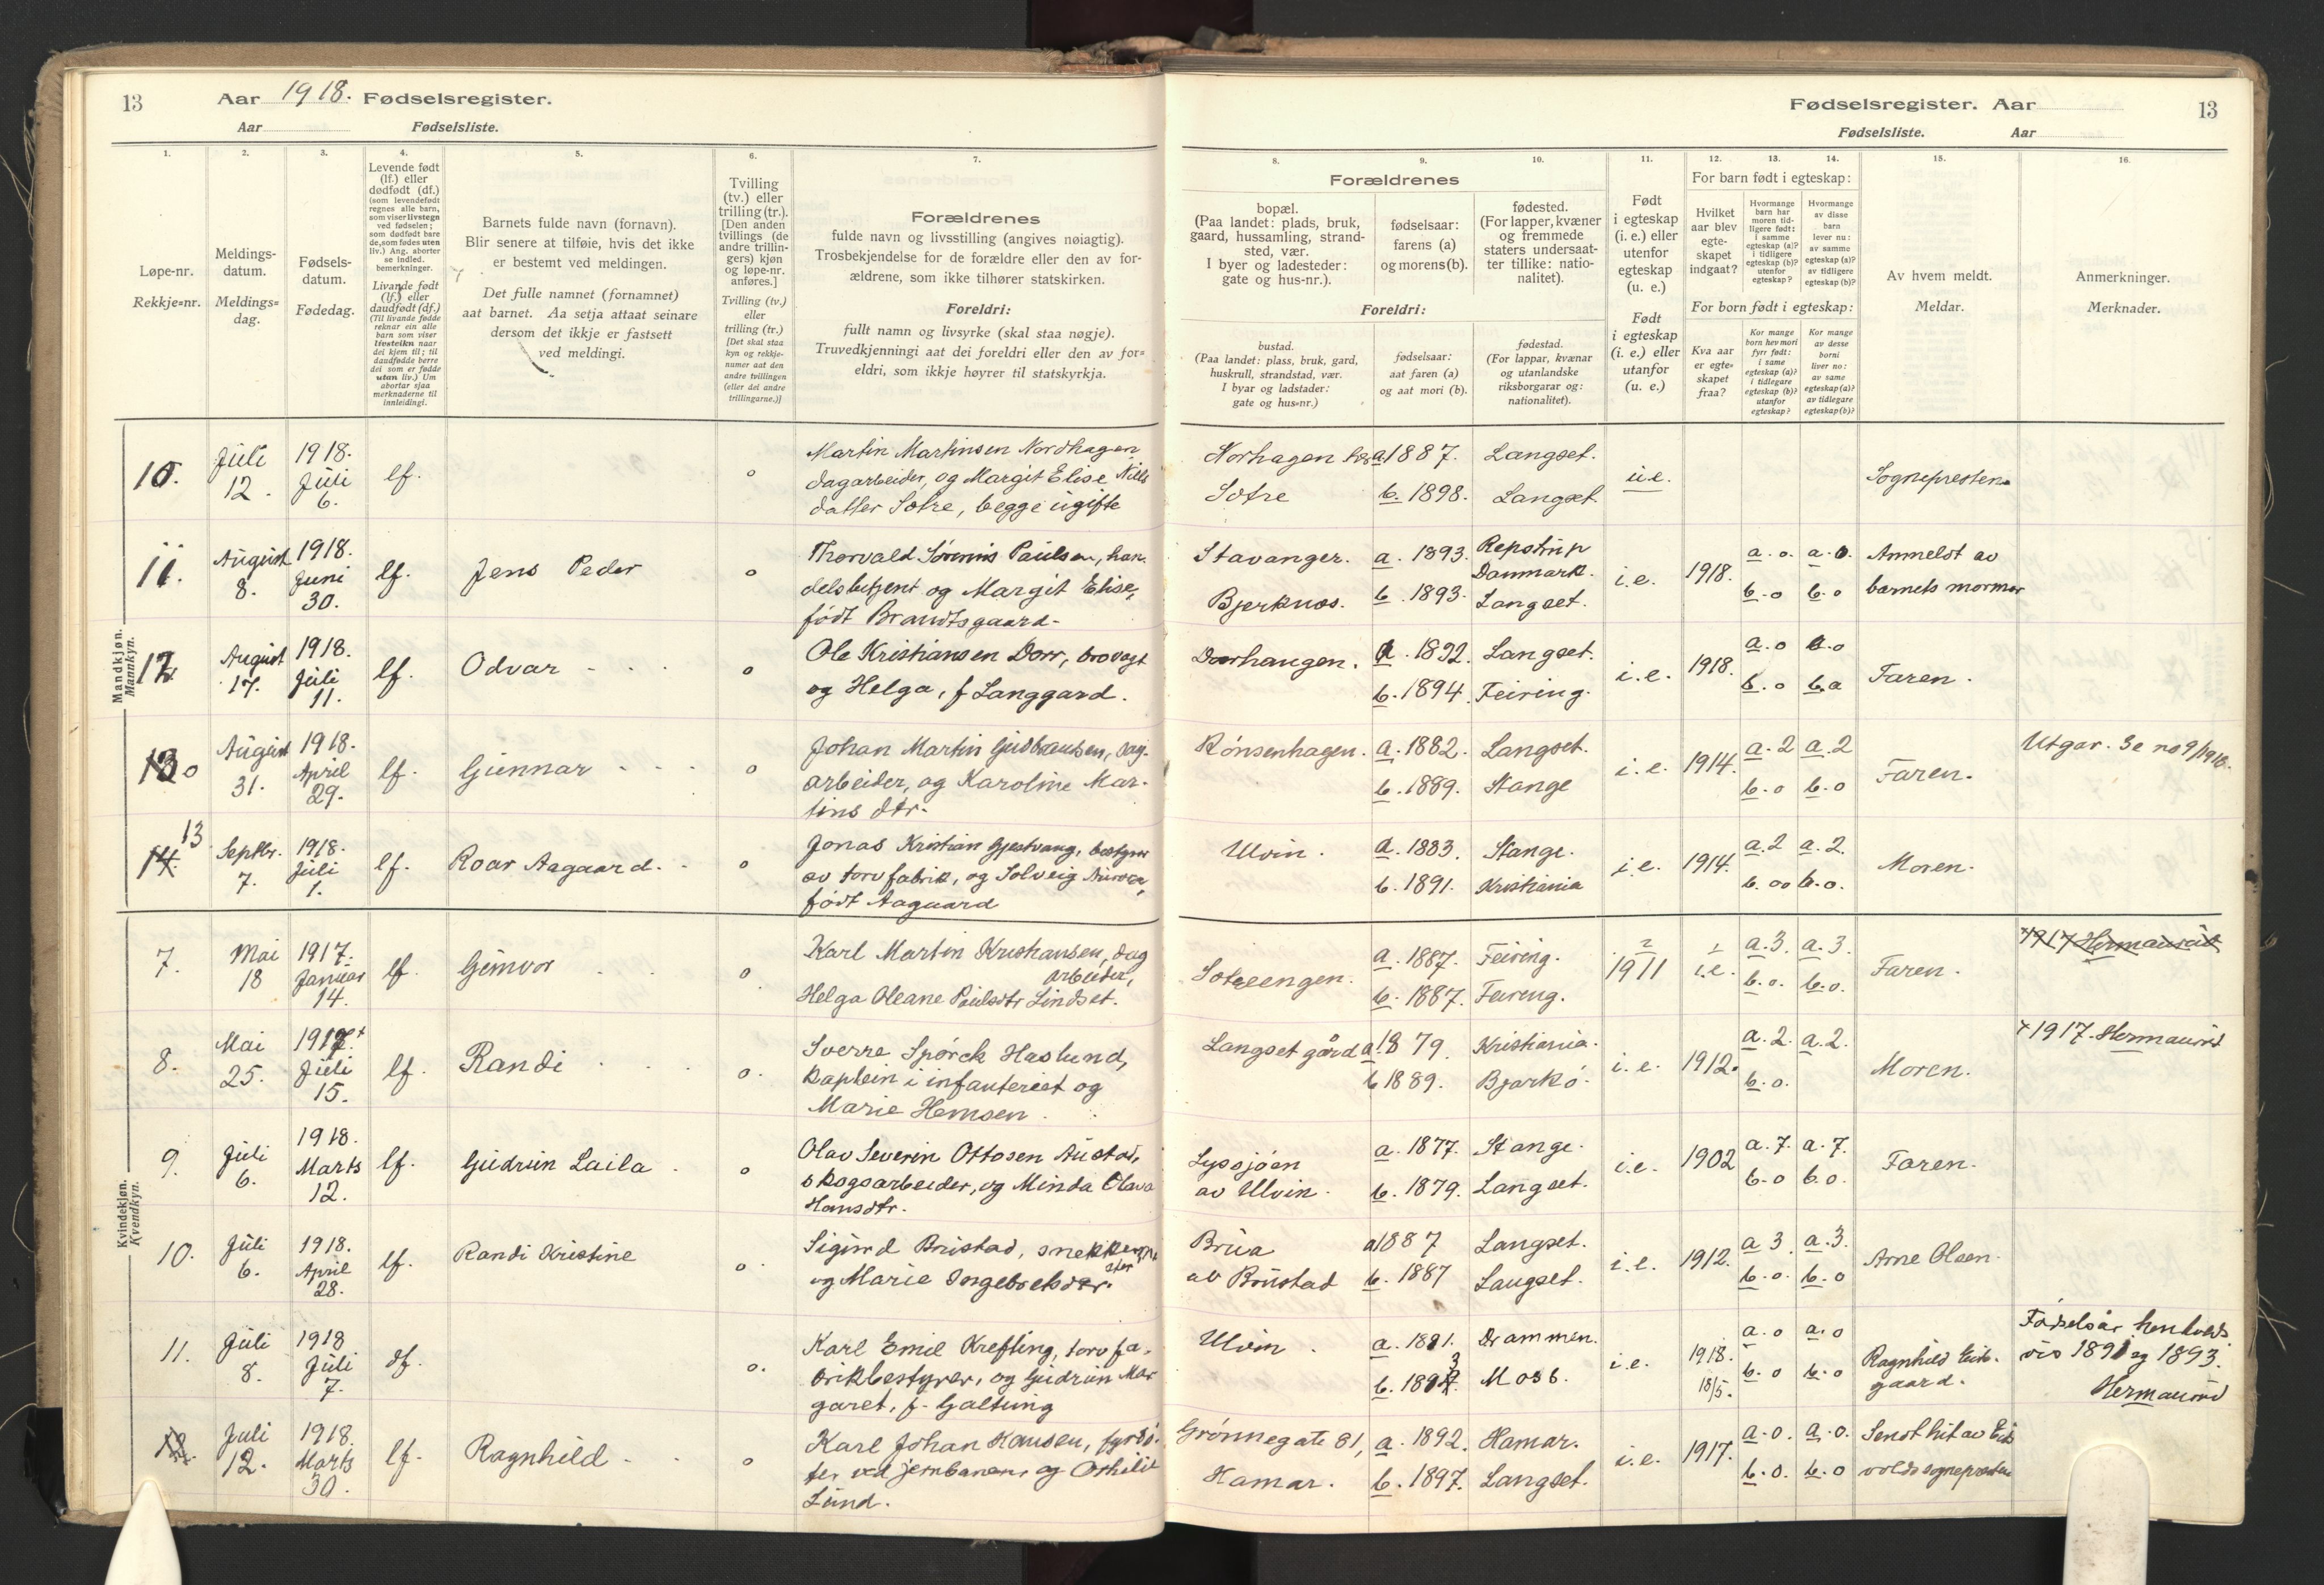 13
Aar 1918. Fødselsregister.
Aar
Fødselsliste.
1.
2.
3.
4.
5.
6.
7.
Løpe-nr.
Rekkje-nr.
Meldings-
datum.
Meldings-
dag.
Fødsels-
datum.
Fødedag.
Levende født
(lf.) eller
dødfødt (df.)
(som levendefødt
regnes alle barn,
som viser livstegn
ved fødselen;
som dødfødt bare
de, som fødes uten
liv.) Ang. aborter
se indled.
bemerkninger.
Livande født
(lf.) eller
daudfødt (df.)
(Til livande fødde
reknar ein alle
born som viser
lifsteikn naar
dei kjem til; til
daudfødde berre
dei som er fødde
utan liv.) Um
abortar sjaa
merknaderne til
innleidingi.
Barnets fulde navn (fornavn).
Blir senere at tilføie, hvis det ikke
er bestemt ved meldingen.
Det fulle namnet (fornamnet)
aat barnet. Aa setja attaat seinare
dersom det ikkje er fastsett
ved meldingi.
Tvilling
(tv.) eller
trilling (tr.).
[Den anden
tvillings (de
andre trillin-
gers) kjøn
og løpe-nr.
anføres.]
Tvilling (tv.)
eller
trilling (tr.)
[Det skal staa
kyn og rekkje-
numer aat den
andre tvillingen
(eller dei andre
trillingarne.)]
Forældrenes
fulde navn og livsstilling (angives nøiagtig).
Trosbekjendelse for de forældre eller den av for-
ældrene, som ikke tilhører statskirken.
Foreldri:
fullt namn og livsyrke (skal staa nøgje).
Truvedkjenningi aat dei foreldri eller den av for-
eldri, som ikkje høyrer til statskyrkja.
Mandkjøn.
Mannkyn.
10.
Juli
12.
1918.
Juli
6.
lf.
o
Martin Martinsen Nordhagen
dagarbeider, og Margit Elise Niels
datter Sotre, begge ugifte
11.
August
8.
1918.
Juni
30.
lf.
Jens Peder
o
Thorvald Sørenis Paulsen, han-
delsbetjent og Margit Elise,
født Brandtsgaard-
12
August
17.
1918.
Juli
11.
lf.
Odvar
o
Ole Kristiansen Dorr, brovagt
og Helga, f Langgard.
13
August
31.
1918.
April
29.
lf.
Gunnar
o
Johan Martin Gudbrandsen, dag-
arbeider, og Karoline Mar-
tins dtr.
14. 13
Septbr.
7.
1918.
Juli
1.
lf.
Roar Aagaard.
o
Jonas Kristian Gjestvang, bestyrer
av torvfabrik, og Solveig Aurora,
født Aagaard
Kvindekjøn.
Kvendkyn.
7.
Mai
18
1917.
Januar
14.
lf.
Gunvor
o
Karl Martin Kristiansen, dag
arbeider,
Helga Oleane Paulsdtr Lindset.
8.
Mai
25.
1917.+
Juli
15.
lf.
Randi
o.
Sverre Spørck Haslund,
kaptein i infanteriet og
Marie Hemsen.
9.
Juli
6.
1918.
Marts
12.
lf.
Gudrun Laila
o
Olav Severin Ottosen Austad,
skogsarbeider, og Minda Olava
Hansdtr.
10.
Juli
6.
1918.
April
28.
lf.
Randi Kristine
o.
Sigurd Brustad,
og Marie Ingeborgsdtr.
11.
Juli
8.
1918
Juli
7.
df.
o.
Karl Emil Krefting, torvfa-
brikbestyrer, og Gudrun Mar
garet, f. Galtung
12.
Juli
12.
1918.
Marts
30.
lf.
Ragnhild
o
Karl Johan Hansen, fyrbø-
ter ved jernbanen, og Othilie
Lund.
Fødselsregister. Aar
13
Fødselsliste.
Aar
8.
9.
10.
11.
12.
13.
14.
15.
16.
Forældrenes
bopæl.
(Paa landet: plads, bruk,
gaard, hussamling, strand-
sted, vær.
I byer og ladesteder:
gate og hus-nr.).
fødselsaar:
farens (a)
og morens (b).
fødested.
(For lapper, kvæner
og fremmede
staters undersaat-
ter tillike: natio-
nalitet).
Foreldri:
bustad.
(Paa landet: plass, bruk, gard,
huskrull, strandstad, vær.
I byar og ladstader:
gate og hus-nr.)
fødselsaar:
aat faren (a)
og aat mori (b).
fødestad.
(For lappar, kvænar
og utanlandske
riksborgarar og:
nationalitet).
Født
i egteskap
(i. e.) eller
utenfor
egteskap
(u. e.)
Født
i egteskap
(i. e.) eller
utanfor
(u. e.)
For barn født i egteskap:
Hvilket
aar blev
egte-
skapet
indgaat?
Hvormange
barn har
moren tid-
ligere født:
i samme
egteskap (a)?
i tidligere
egteskap (b)?
utenfor
egteskap?
Hvormange
av disse
barn
lever nu:
av samme
egteskap (a)?
av tidligere
egteskap (b)?
For born født i egteskap:
Kva aar
er egte-
skapet
fraa?
Kor mange
born hev mori
fyrr født:
i same
egteskap (a)?
i tidlegare
egteskap (b)?
utanfor
egteskap?
Kor mange
av desse
borni
liver no:
av same
egteskap (a)?
av tidlegare
egteskap (b)?
Av hvem meldt.
Meldar.
Anmerkninger.
Merknader.
Norhagen
Sotre
a 1887.
b. 1898.
Langset.
Langset
u.e.
Sognepresten
Stavanger.
Bjerknes.
a. 1893.
b. 1893.
Repstrup
Danmark.
Langset.
i.e.
1918.
a. o. a. o.
b. o b. o
Anmeldt av
barnets mormor
Dorrhaugen.
a. 1892.
b. 1894.
Langset.
Feiring.
i.e.
1918.
a. o a. o
b. o b. o
Faren.
Rønsenhagen.
a. 1882.
b. 1889.
Langset.
Stange
i.e.
1914.
a. 2 a. 2
b. o b. o
Faren.
Utgar. Se no 9/1918.
Ulvin.
a. 1883.
b. 1891.
Stange.
Kristiania
i.e.
1914.
a. 2 a. 2.
b. oo b. o.
Moren.
Sotreengen.
a. 1887.
b. 1887.
Feiring.
Feiring.
2
1911
1
i.e.
a. 3. a. 3.
b. o. b. o.
Faren.
+1917 Hermanrud
Langset gård
a. 1879.
b 1889.
Kristiania.
Bjarkø.
i.e.
1912.
a. 2. a. 2.
b. o.
Moren.
+1917. Hermanrud
Lyssjøen
av Ulvin.
a. 1877.
b. 1879.
Stange.
Langset.
i.e.
1902
a. 7. a. 7.
b. o b. o.
Faren.
Brua
av Brustad
a 1887
b. 1887
Langset.
Langset.
i.e.
1912.
a 3 a. 3.
b. o. b. o
Arne Olsen.
Ulvin.
a. 1891.
b. 1893.
Drammen.
Moss.
i.e.
1918.
18/5.
a. o a. o
b. o b. o
Ragnhild Eids-
gaard.
Fødselsår henholds
vis 1891 og 1893.
Hermanrud
Grønnegate 81,
Hamar.
a. 1892.
b. 1897.
Hamar.
Langset.
i.e.
1917.
a. o. a. o.
b. o. b. o
Sendt hit av Eids
volds sogneprest